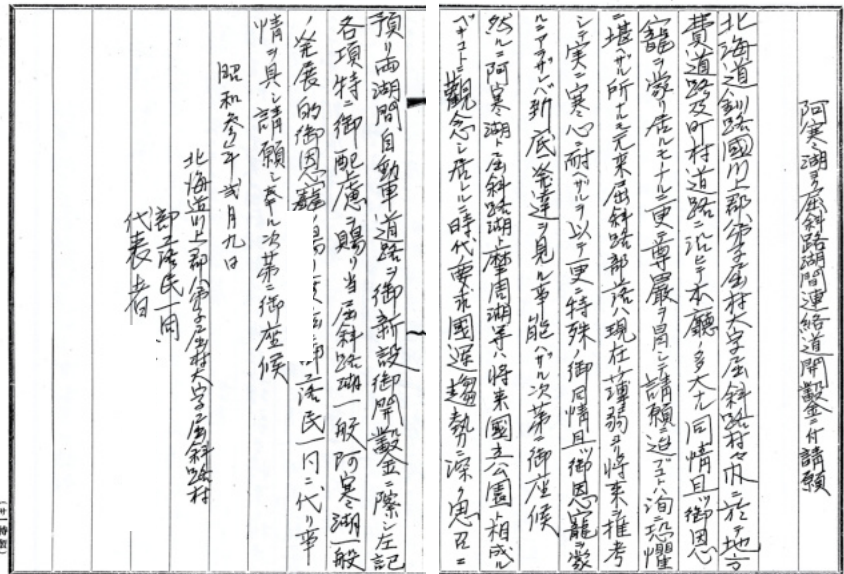 阿寒湖ヨリ屈斜路湖間連絡道開鑿ニ付請願
北海道釧路國川上郡弟子屈村大字屈斜路村々内ニ於テ地方
費道路及町村道路ニ沿ヒテ本廳ノ多大ナル同情且ツ御恩
寵ヲ蒙リ居ルモナルニ更ニ尊嚴ヲ冒シテ請願ニ迫ブコトハ洵ニ恐懼
ニ堪ヘザル所ナルモ元来屈斜路部落ハ現在薄弱ヨリ将来ヲ推考
シテ実ニ寒心ニ耐ヘザルヲ以テ更ニ特殊ノ御同情且ツ御恩寵ヲ蒙
ルニアラザレバ到底発達ヲ見ル事能ハザル次第ニ御座候
然ルニ阿寒湖ト屈斜路湖ト摩周湖等ハ将来國立公園ト相成ル
ベキコトヲ觀念シ居レルニ時代ノ要求國運ノ趨勢ニ深ク思召ニ
預リ両湖間自動車道路ヲ御新設御開鑿ニ際シ左記
各項特ニ御配慮ヲ賜リ当屈斜路湖一般阿寒湖一般
ノ発展的御恩寵ノ賜リ度 部落民一同ニ代リ事
情ヲ具シ請願シ奉ル次第ニ御座候
昭和参年弐月九日
北海道川上郡弟子屈村大字屈斜路村
部落民一同
代表者